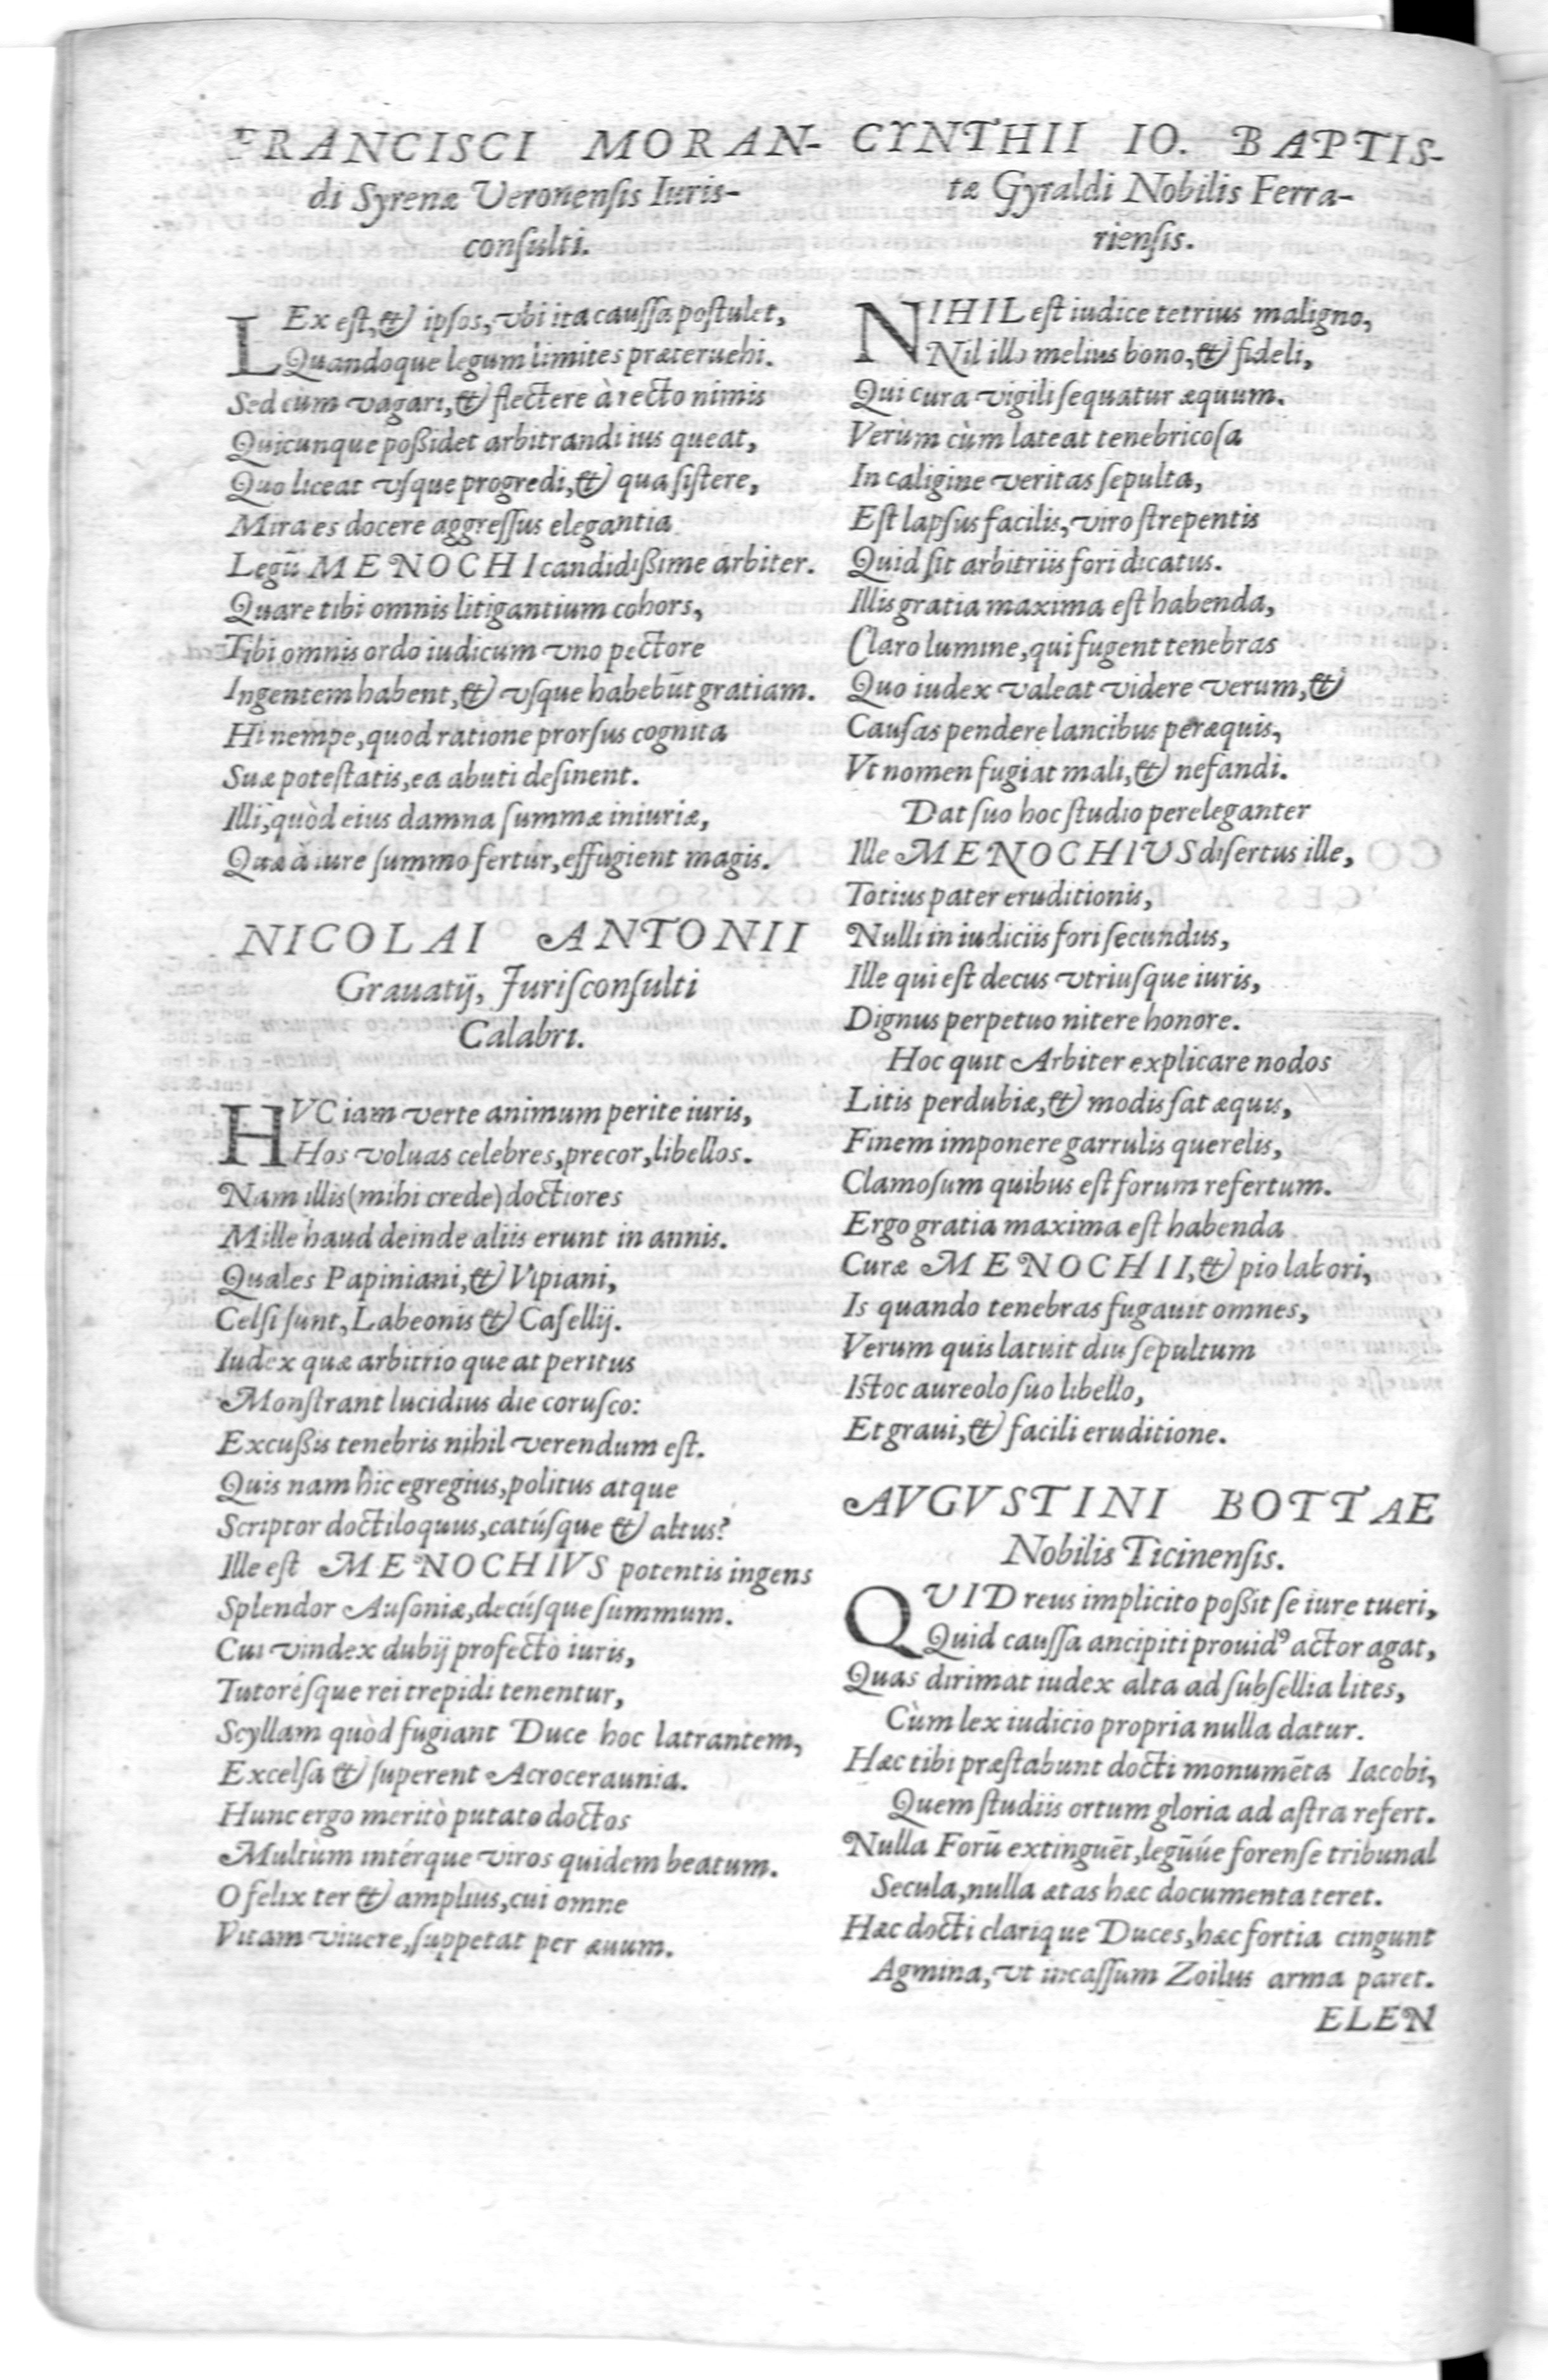 FRANCISCI MORAN-
di Syrenæ Veronensis Iuris-
consulti.
LEx est, & ipsos, vbi ita caussa postulet,
Quandoque legum limites præteruehi.
Sed cum vagari, & flectere à recto nimis
Quicunque poßidet arbitrandi ius queat,
Quo liceat vsque progredi, & qua sistere,
Mira es docere aggressus elegantia
Legũ MENOCHI candidißime arbiter.
Quare tibi omnis litigantium cohors,
Tibi omnis ordo iudicum vno pectore
Ingentem habent, & vsque habebũt gratiam.
Hi nempe, quod ratione prorsus cognita
Suæ potestatis, ea abuti desinent.
Illi, quòd eius damna summæ iniuriæ,
Quæ à iure summo fertur, effugient magis.
NICOLAI ANTONII
Grauatij, Jurisconsulti
Calabri.
HVC iam verte animum perite iuris,
Hos voluas celebres, precor, libellos.
Nam illis (mihi crede) doctiores
Mille haud deinde aliis erunt in annis.
Quales Papiniani, & Vlpiani,
Celsi sunt, Labeonis & Casellij.
Iudex quæ arbitrio queat peritus
Monstrant lucidius die corusco:
Excußis tenebris nihil verendum est.
Quis nam hic egregius, politus atque
Scriptor doctiloquus, catúsque & altus?
Ille est MENOCHIVS potentis ingens
Splendor Ausoniæ, decúsque summum.
Cui vindex dubij profectò iuris,
Tutorésque rei trepidi tenentur,
Scyllam quòd fugiant Duce hoc latrantem,
Excelsa & superent Acroceraunia.
Hunc ergo meritò putato doctos
Multùm intérque viros quidem beatum.
O felix ter & amplius, cui omne
Vitam viuere, suppetat per æuum.
CYNTHII IO. BAPTIS-
tæ Gyraldi Nobilis Ferra-
riensis.
NIHIL est iudice tetrius maligno,
Nil illo melius bono, & fideli,
Qui cura vigili sequatur æquum.
Verùm cùm lateat tenebricosa
In caligine veritas sepulta,
Est lapsus facilis, viro strepentis
Quid sit arbitriis fori dicatus.
Illis gratia maxima est habenda,
Claro lumine, qui fugent tenebras
Quo iudex valeat videre verum, &
Causas pendere lancibus peræquis,
Vt nomen fugiat mali, & nefandi.
Dat suo hoc studio pereleganter
Ille MENOCHIUS disertus ille,
Totius pater eruditionis,
Nulli in iudiciis fori secundus,
Ille qui est decus vtriusque iuris,
Dignus perpetuo nitere honore.
Hoc quit Arbiter explicare nodos
Litis perdubiæ, & modis sat æquis,
Finem imponere garrulis querelis,
Clamosum quibus est forum refertum.
Ergo gratia maxima est habenda
Curæ MENOCHII, & pio labori,
Is quando tenebras fugauit omnes,
Verum quis latuit diu sepultum
Istoc aureolo suo libello,
Et graui, & facili eruditione.
AVGVSTINI BOTTAE
Nobilis Ticinensis.
QUID reus implicito poßit se iure tueri,
Quid caussa ancipiti prouidꝰ actor agat,
Quas dirimat iudex alta ad subsellia lites,
Cùm lex iudicio propria nulla datur.
Hæc tibi præstabunt docti monumēta Iacobi,
Quem studiis ortum gloria ad astra refert.
Nulla Forũ extinguēt, legũúe forense tribunal
Secula, nulla ætas hæc documenta teret.
Hæc docti clarique Duces, hæc fortia cingunt
Agmina, vt incassum Zoilus arma paret.
ELEN